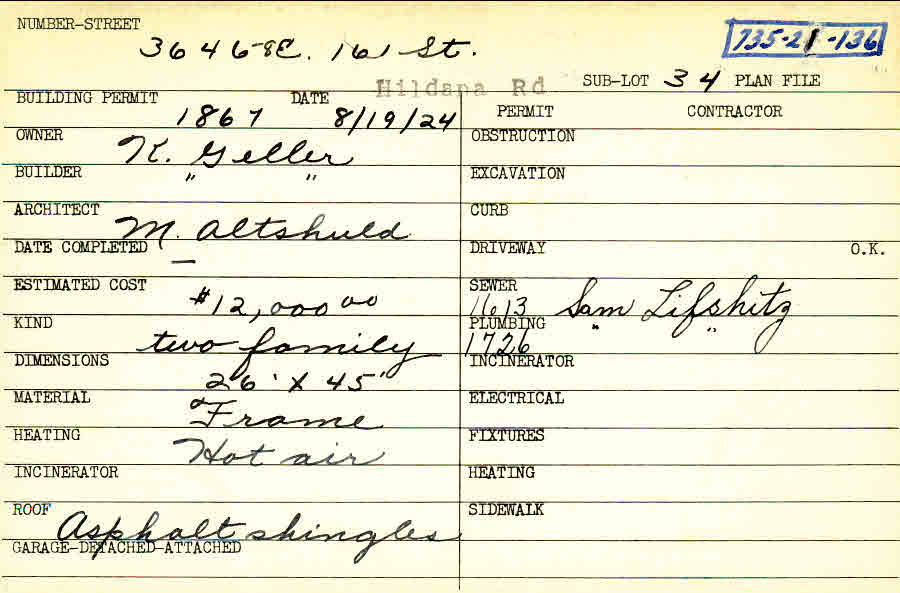 NUMBER-STREET
3646-8 E. 161 St.
735-21-136
Hildana Rd
SUB-LOT 34 PLAN FILE
BUILDING PERMIT 1867 DATE 8/19/24
PERMIT CONTRACTOR
OWNER K. Geller
OBSTRUCTION
BUILDER " "
EXCAVATION
ARCHITECT M. Altshuld
CURB
DATE COMPLETED —
DRIVEWAY O.K.
ESTIMATED COST $12,000 00
SEWER 1613 Sam Lifshitz
KIND two family
PLUMBING 1726 " "
DIMENSIONS 26' X 45'
INCINERATOR
MATERIAL Frame
ELECTRICAL
HEATING Hot air
FIXTURES
INCINERATOR
HEATING
ROOF Asphalt shingles
SIDEWALK
GARAGE-DETACHED-ATTACHED